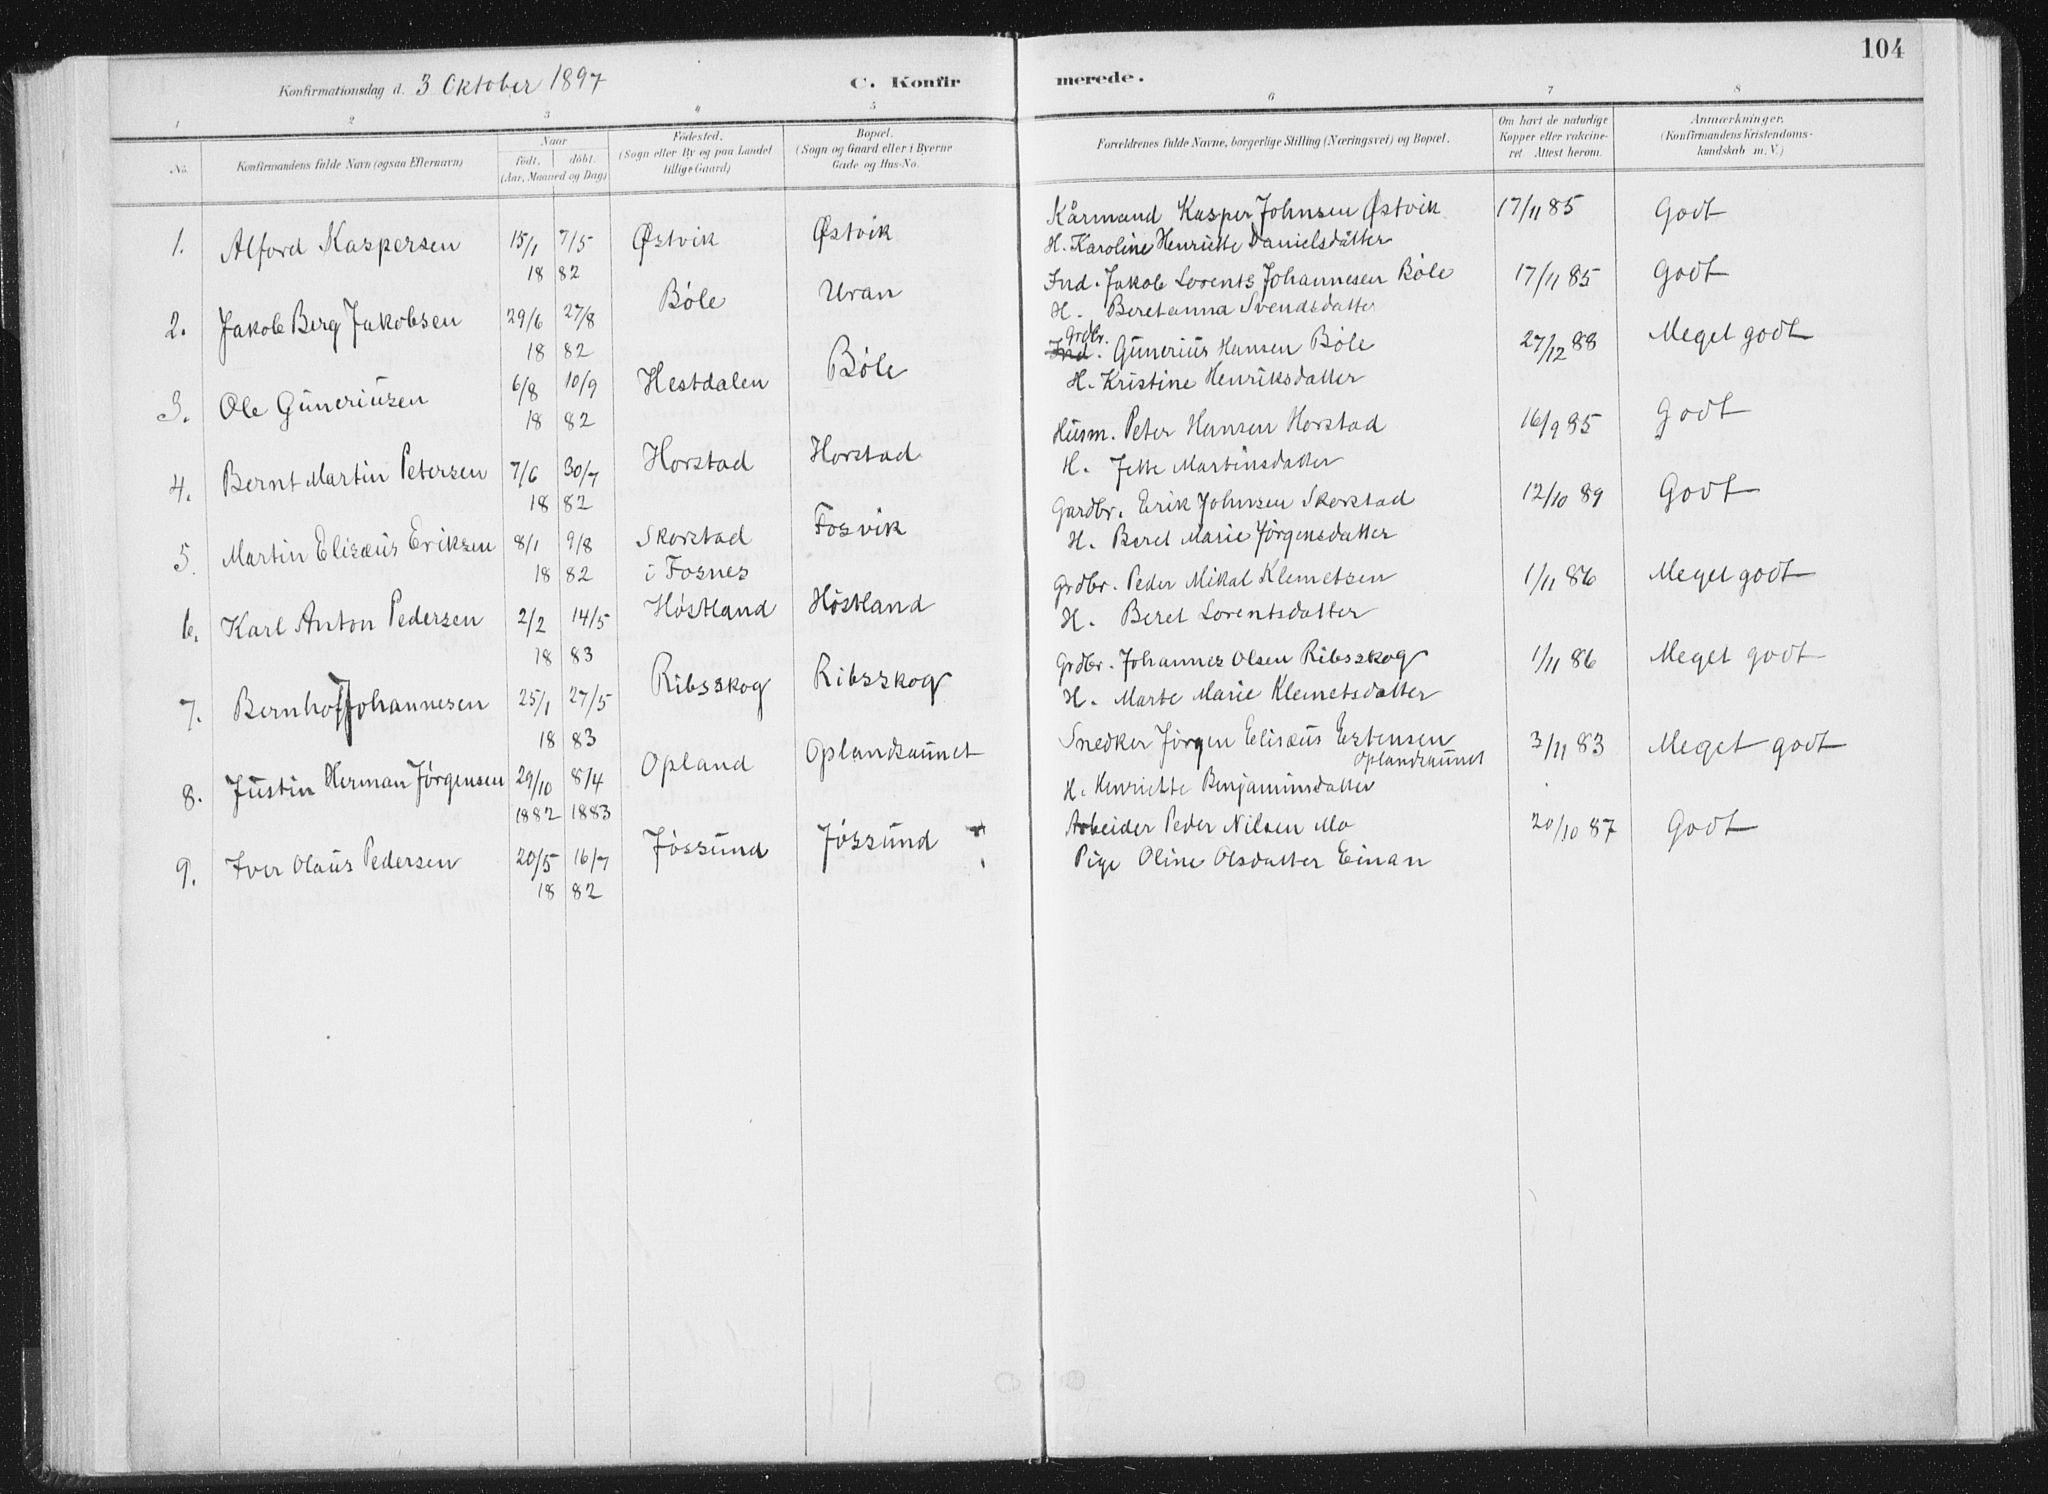 104
Konfirmationsdag d. 3 Oktober 1897 C. Konfirmerede.
1 2 3 4 5 6 7 8
No. Konfirmandens fulde Navn (ogsaa Efternavn) Naar født. døbt. (Aar, Maaned og Dag) Fødested. (Sogn eller By og paa Landet tillige Gaard) Bopæl. (Sogn og Gaard eller i Byerne Gade og Hus-No. Forældrenes fulde Navne, borgerlige Stilling (Næringsvei) og Bopæl. Om havt de naturlige Kopper eller vakcineret. Attest herom. Anmærkninger. (Konfirmandens Kristendomskundskab m. V.)
1. Alford Kaspersen 15/1 7/5 Østvik Østvik Kårmand Kasper Johnsen Østvik 17/11 85 Godt
18 82 H. Karoline Henriette Danielsdatter
2. Jakob Berg Jakobsen 29/6 27/8 Bøle Uran Ind. Jakob Lorents Johannesen Bøle 17/11 85 Godt
18 82 H. Beretanna Svendsdatter
3. Ole Guneriusen 6/8 10/9 Hestdalen Bøle Ind. Grdbr. Gunerius Hansen Bøle 27/12 88 Meget godt
18 82 H. Kristine Henriksdatter
4. Bernt Martin Petersen 7/6 30/7 Horstad Horstad Husm. Peter Hansen Horstad 16/9 85 Godt
18 82 H. Jette Martinsdatter
5. Martin Elisæus Eriksen 8/1 9/8 Skorstad Fosvik Gardbr. Erik Johnsen Skorstad 12/10 89 Godt
18 82 i Fosnes H. Beret Marie Jørgensdatter
6. Karl Anton Pedersen 2/2 14/5 Høstland Høstland Grdbr. Peder Mikal Klemetsen 1/11 86 Meget godt
18 83 H. Beret Lorentsdatter
7. Bernhof Johannesen 25/1 27/5 Ribsskog Ribsskog Grdbr. Johannes Olsen Ribsskog 1/11 86 Meget godt
18 83 H. Marte Marie Klemetsdatter
8. Justin Herman Jørgensen 29/10 8/4 Opland Oplandsaunet Snedker Jørgen Elisæus Estensen Oplandsaunet 3/11 83 Meget godt
1882 1883 H. Henriette Benjaminsdatter
9. Iver Olaus Pedersen 20/5 16/7 Jøssund Jøssund Arbeider Peder Nilsen Mo 20/10 87 Godt
18 82 Pige Oline Olsdatter Einan